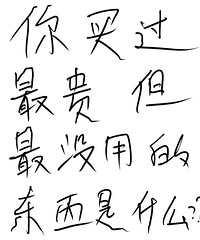 你买过
最贵 但
最没用的
东西是什么??